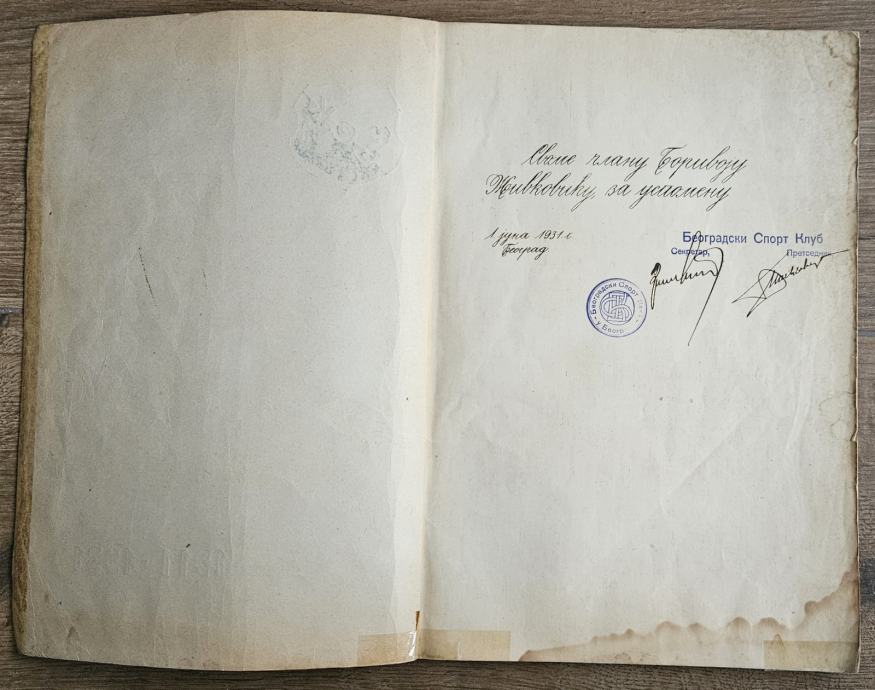 Своме члану Боривоју
Живковићу, за успомену
1 јуна 1931 г.
Београд.
Београдски Спорт Клуб
Секретар, Претседник
Београдски Спорт
у Беогр